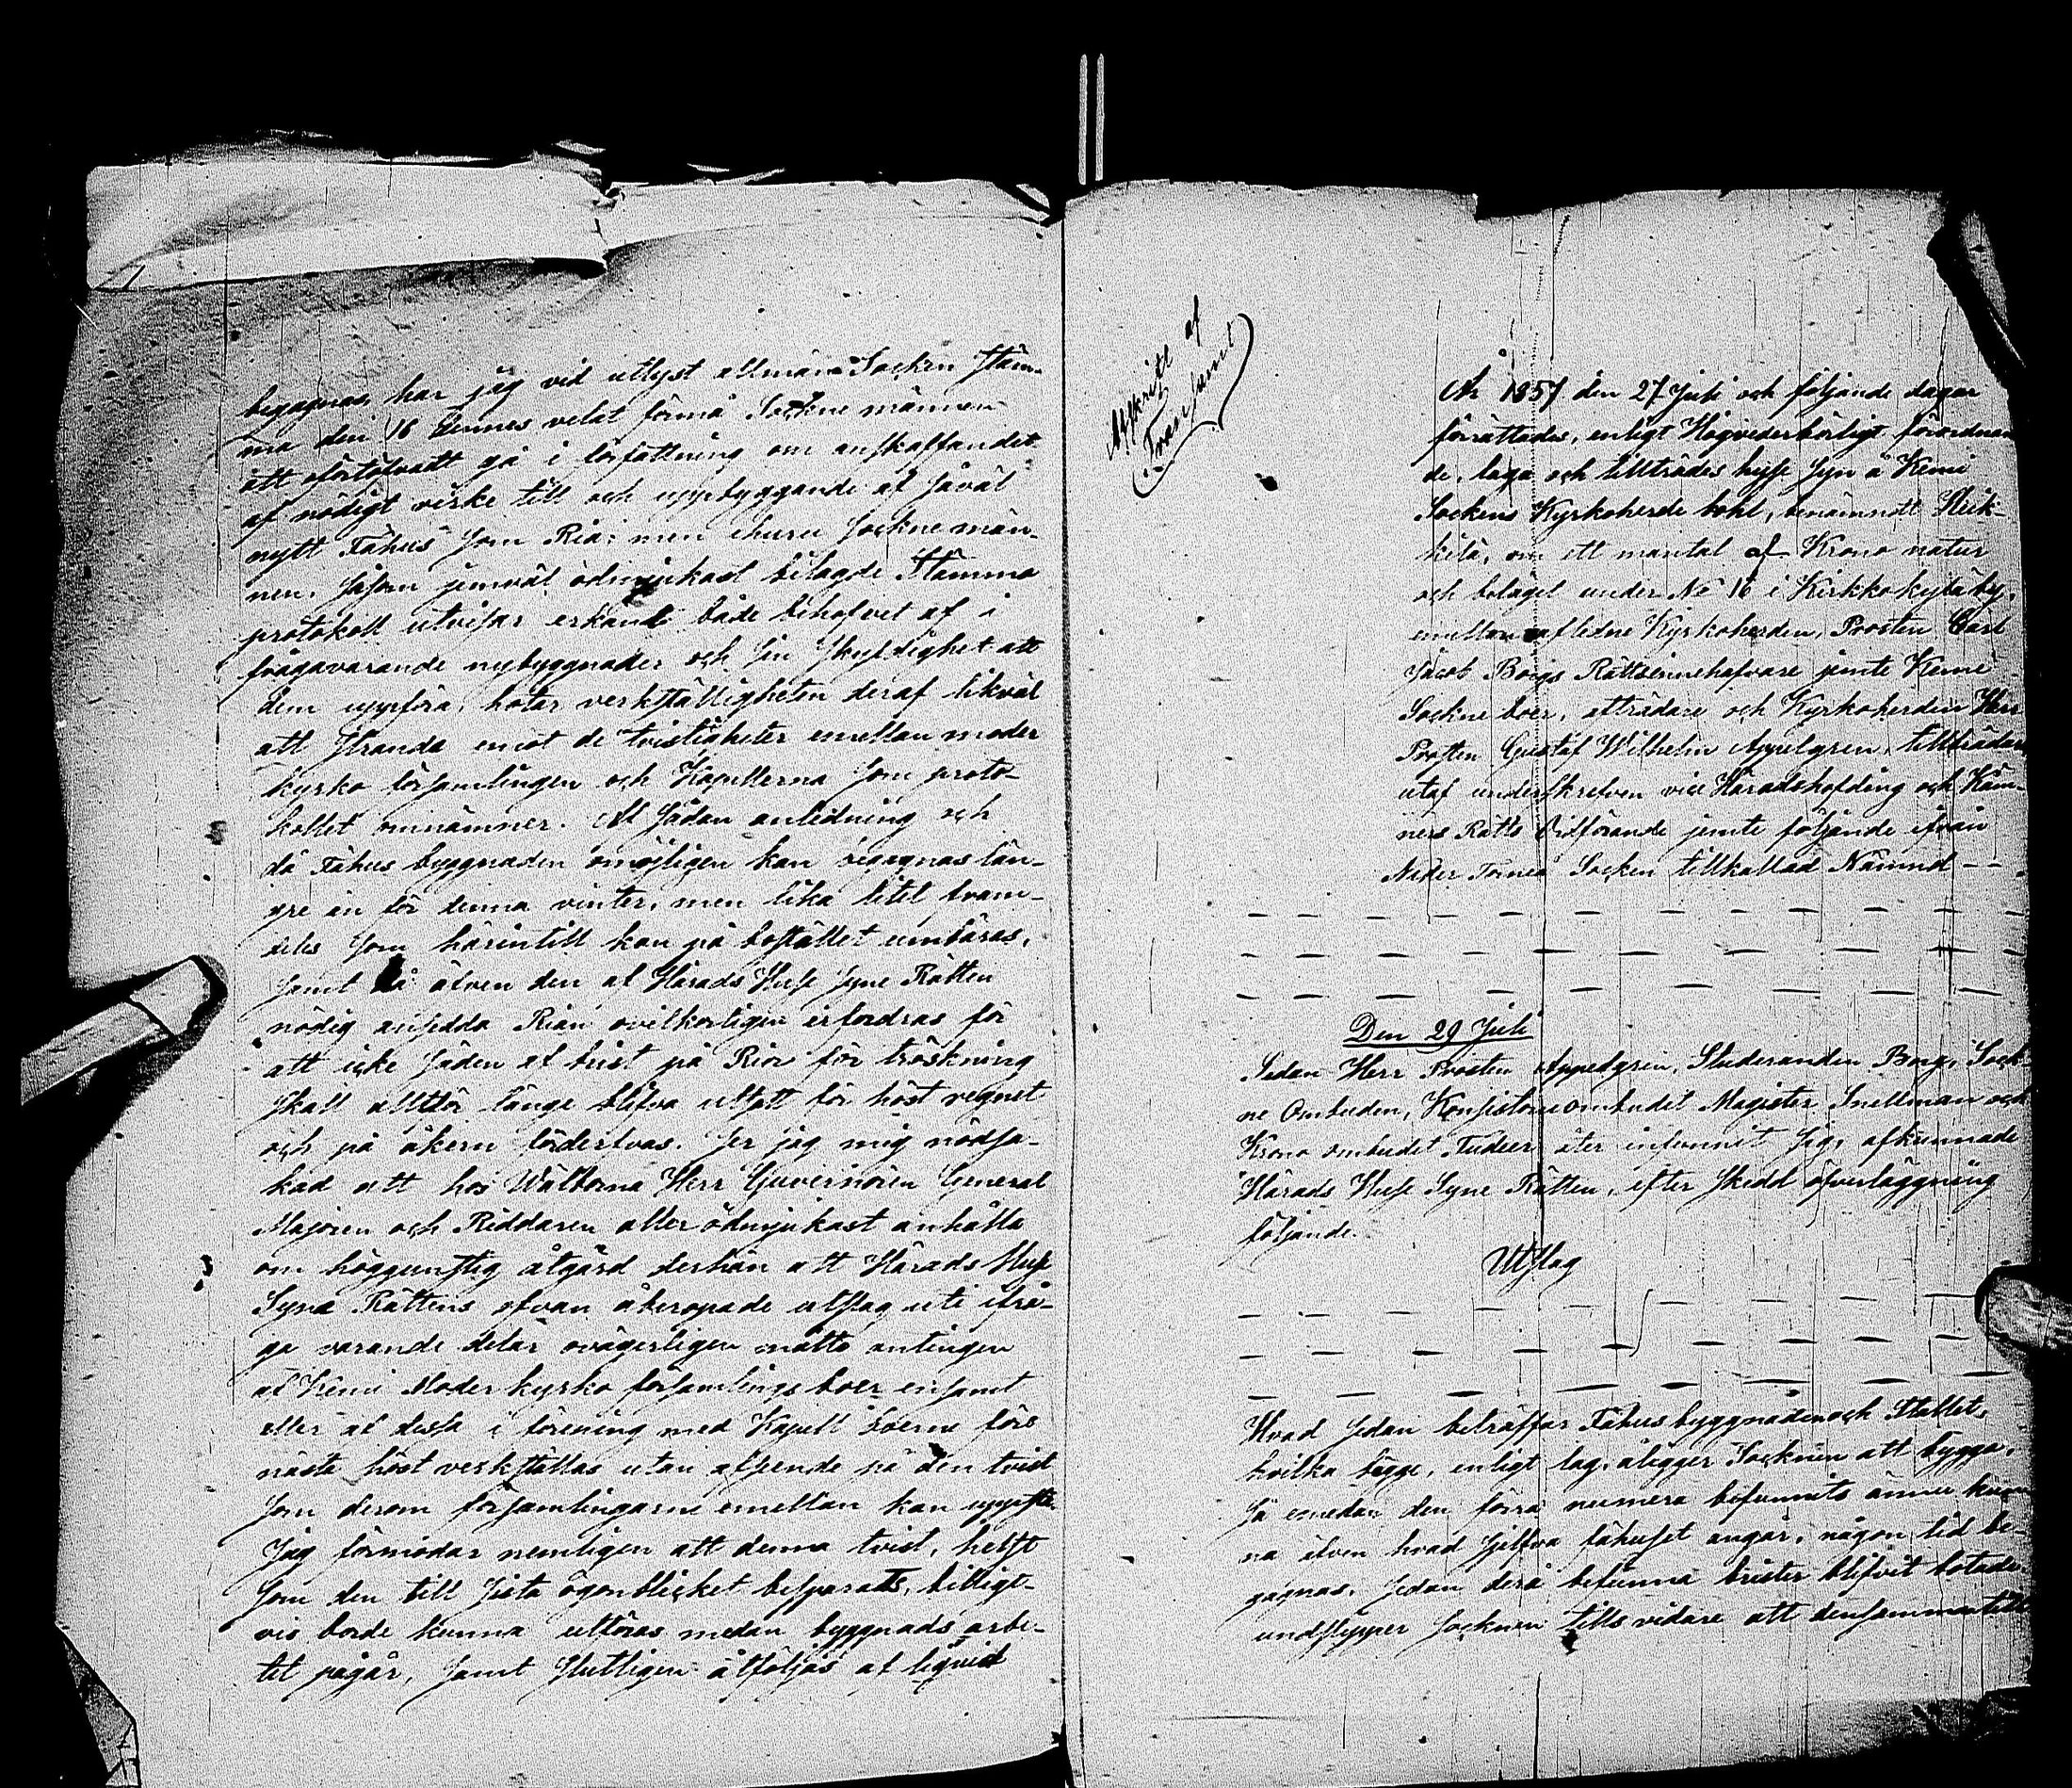 begagnas, har jag vid utlyst allmän Socken stäm-
ma den 16 dennes velat förmå Sockne männen
att ofördröjadt gå i författning om anskaffandet
af nödigt virke till och uppbyggande af såväl
nytt Fähus som Ria; men ehuru Sockne män-
nen, såsom jemväl ödmjukast bilagde Stämmo
protokoll utvisar erkändt både behofvet af i
frågavarande nybyggnader och sin skyldighet att
dem uppföra, hotar verkställigheten deraf likväl
att stranda emot de tvistigheter emellan moder
kyrko församlingen och Kapellerna som proto-
kollet omnämner. Af sådan anledning och
då Fähus byggnaden omöjligen kan begagnas län-
gre än för denna vinter, men lika litet fram-
deles som härintill kan på bostället umbäras,
samt då äfven den af Härads Husse Syne Rätten
nödig ansedda Rian ovilkorligen erfordras för
att icke säden af brist på Rior för tröskning
skall alltför länge blifva utsatt för höst regnet
och på åkern förderfvas. Ser jag mig nödsa-
kad att hos Wälborna Herr Guvernören General
Majoren och Riddaren aller ödmjukast anhålla
om höggunstig åtgärd derhän att Härads Husse
Syne Rättens ofvan åberopade utslag uti ifrå-
ga varande delar ovägerligen måtte antingen
af Kemi Moder kyrko församlings boer ensamt
eller af dessa i förening med Kapell boerne före
nästa höst verkställas utan afseende på den tvist
som derom församlingarne emellan kan uppstå.
Jag förmodar nemligen att denna tvist, helst
som den till sista ögonblicket besparats, billigt-
vis borde kunna utföras medan byggnads arbe-
tet pågår, samt slutligen åtföljas af liqvid
Afskrift af
Transsumt
År 1857 den 27 Juli och följande dagar
förrättades, enligt Högvederbörligt förordnan
de, laga och tillträdes husse syn å Kemi
Sockens Kyrkoherde bohl, benämndt Heik-
kilä, om ett mantal af Krono natur
och belaget under No 16 i Kirkkokylä by,
emellan aflidne Kyrkoherden, Prosten Carl
Jacob Borgs Rättsinnehafvare jemte Kemi
Sockne boer, afträdare och Kyrkoherden Herr
Prosten Gustaf Wilhelm Appelgren, tillträdare
utaf underskrefven vice Häradshöfding och Käm-
ners Rätts Ordförande jemte följande ifrån
Neder Torneå Socken tillkallad Nämnd – –
Den 29 Juli
Sedan Herr Prosten Appelgren, Studeranden Borg, Sock-
ne Ombuden, Konsistorii ombudet Magister Snellman och
Krono ombudet Tudeer åter infunnit sig, afkunnade
Härads Husse Syne Rätten, efter skedd öfverläggning
följande.
Utslag
Hvad sedan beträffar Fähusbyggnaden och Stallet,
hvilka begge, enligt lag, åligger Socknen att bygga,
så emedan den förra numera befunnits ännu kun
na äfven hvad sjelfva fähuset angår, någon tid be-
gagnas, sedan derå befunna brister blifvit botade,
undslipper Socknen tills vidare att densamma till